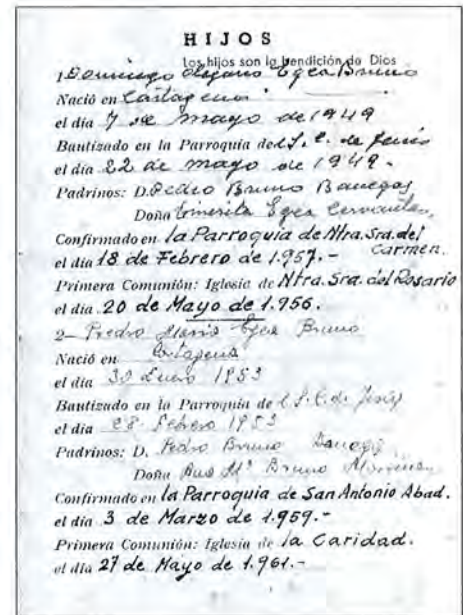 HIJOS
Los hijos son la bendición de Dios
1 Domingo Egea Bruno
Nació en Cartagena
el día 7 de mayo de 1949
Bautizado en la Parroquia del S. C. de Jesús
el día 22 de mayo de 1949.-
Padrinos: D. Pedro Bruno
Doña Emerita Egea Cervantes
Confirmado en la Parroquia de Ntra. Sra. del Carmen.
el día 18 de Febrero de 1.957.-
Primera Comunión: Iglesia de Ntra. Sra. del Rosario
el día 20 de Mayo de 1.956.
2- Pedro María Egea Bruno
Nació en Cartagena
el día 30 Enero 1953
Bautizado en la Parroquia de S. C. de Jesús
el día 28 Febrero 1953
Padrinos: D. Pedro Bruno
Doña Ana Mª Bruno
Confirmado en la Parroquia de San Antonio Abad.
el día 3 de Marzo de 1.959.-
Primera Comunión: Iglesia de la Caridad.
el día 27 de Mayo de 1.961.-